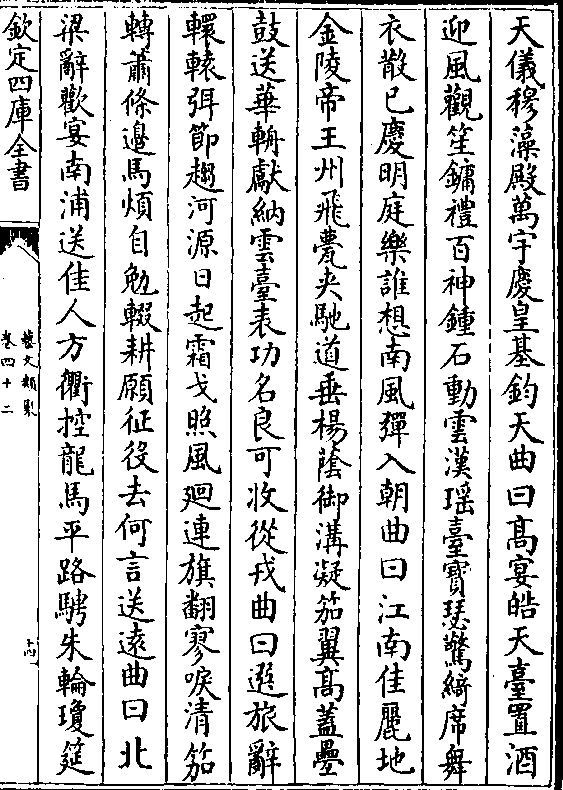 天儀穆藻殿萬宇慶皇基鈞天曲曰髙宴皓天臺置酒
迎風觀笙鏞禮百神鍾石動雲漢瑶臺寳瑟驚綺席舞
衣散已慶明庭樂誰想南風彈入朝曲曰江南佳麗地
金陵帝王州飛甍夹馳道垂楊蔭御溝凝笳翼髙蓋疊
鼓送華輈獻納雲臺表功名良可收從戎曲曰選旅辭
轘轅弭節趨河源日起霜戈照風迴連旗翻寥唳清笳
轉蕭條邉馬煩自勉輟耕願征役去何言送逺曲曰北
梁辭歡宴南浦送佳人方衢控龍馬平路騁朱輪瓊筵
欽定四庫全書
藝文類聚
卷四十二
十四